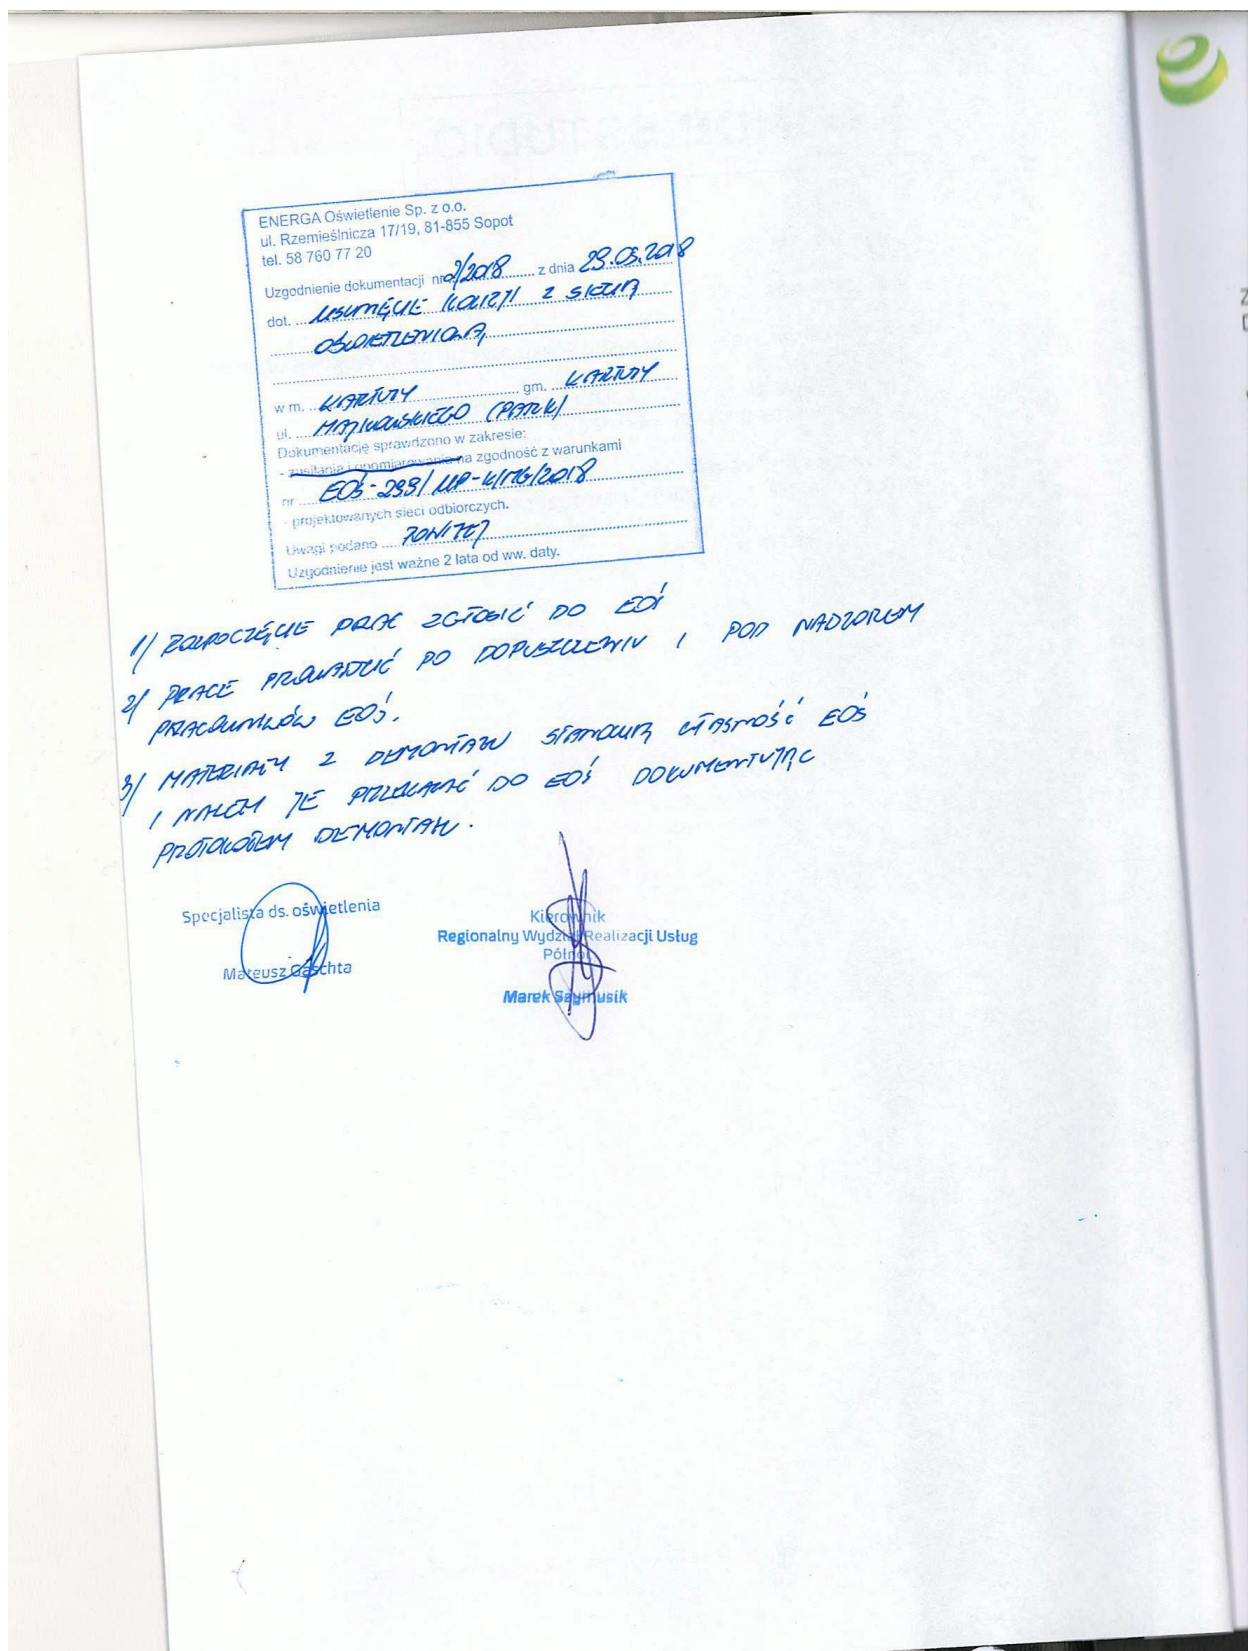 ENERGA Oświetlenie Sp. z o.o.
ul. Rzemieślnicza 17/19, 81-855 Sopot
tel. 58 760 77 20
Uzgodnienie dokumentacji nr 2/2018 z dnia 29.05.2018
dot. USUNIĘCIE KOLIZJI Z SIECIĄ
OŚWIETLENIOWĄ
w m. KARTUZY gm. KARTUZY
ul. MAJKOWSKIEGO (PARK)
Dokumentację sprawdzono w zakresie:
- zasilania i opomiarowania na zgodność z warunkami
nr EOŚ-299/ /2018
- projektowanych sieci odbiorczych.
Uwagi podano PONIŻEJ
Uzgodnienie jest ważne 2 lata od ww. daty.
1/ ROZPOCZĘCIE PRAC ZGŁOSIĆ DO EOŚ
2/ PRACE PROWADZIĆ PO DOPUSZCZENIU I POD NADZOREM
PRACOWNIKÓW EOŚ.
3/ MATERIAŁY Z DEMONTAŻU STANOWIĄ WŁASNOŚĆ EOŚ
I NALEŻY JE PRZEKAZAĆ DO EOŚ DOKUMENTUJĄC
PROTOKOŁEM DEMONTAŻU.
Specjalista ds. oświetlenia
Mateusz Gaschta
Kierownik
Regionalny Wydział Realizacji Usług
Północ
Marek Szymusik